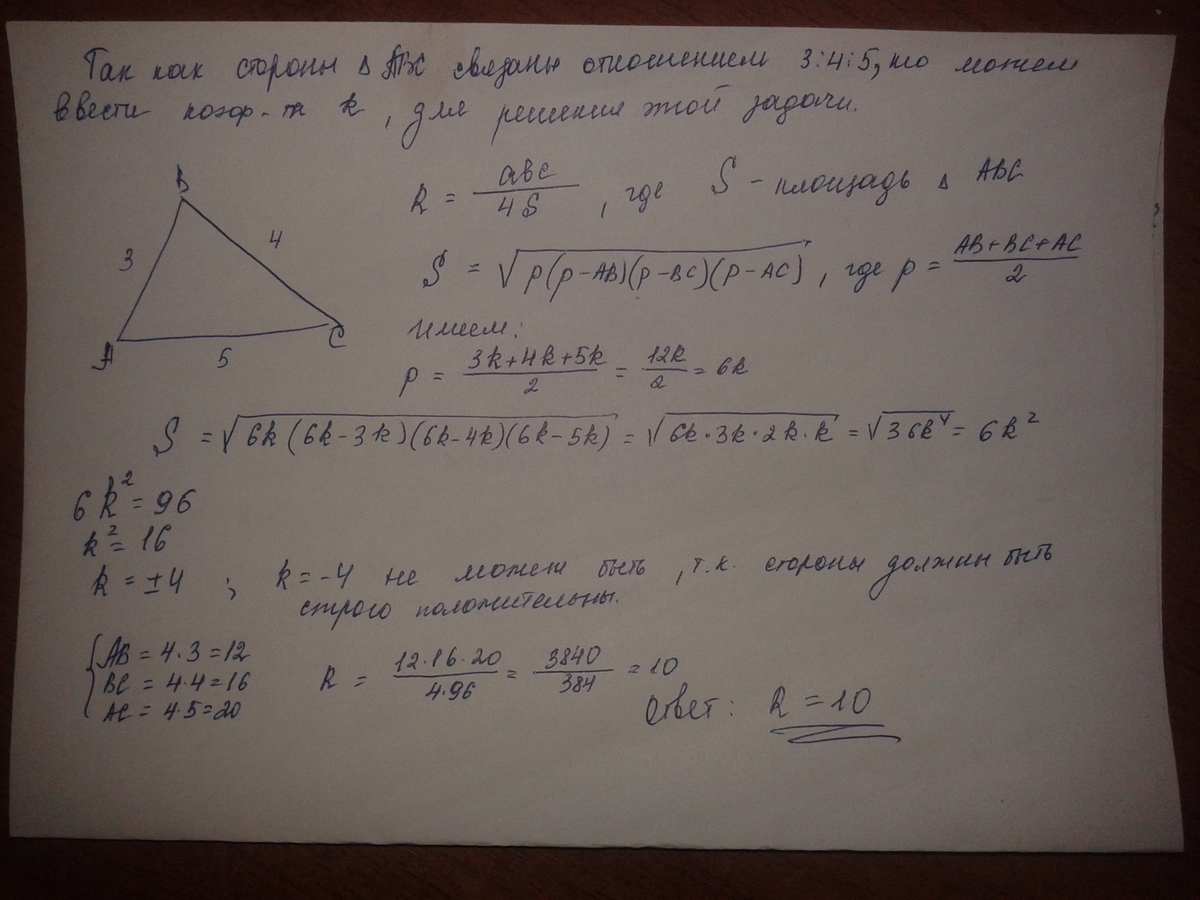 Так как стороны Δ ABC связаны отношением 3:4:5, то можем
ввести коэф-т k, для решения этой задачи.
B
3
4
A
5
C
R = abc / 4S, где S - площадь Δ ABC
S = √(p(p-AB)(p-BC)(p-AC)), где p = (AB+BC+AC) / 2
Имеем:
p = (3k+4k+5k) / 2 = 12k / 2 = 6k
S = √(6k(6k-3k)(6k-4k)(6k-5k)) = √(6k·3k·2k·k) = √(36k⁴) = 6k²
6k² = 96
k² = 16
k = ±4 ; k = -4 не может быть, т.к. стороны должны быть
строго положительны.
{ AB = 4·3 = 12
BC = 4·4 = 16
AC = 4·5 = 20
R = 12·16·20 / 4·96 = 3840 / 384 = 10
Ответ: R = 10